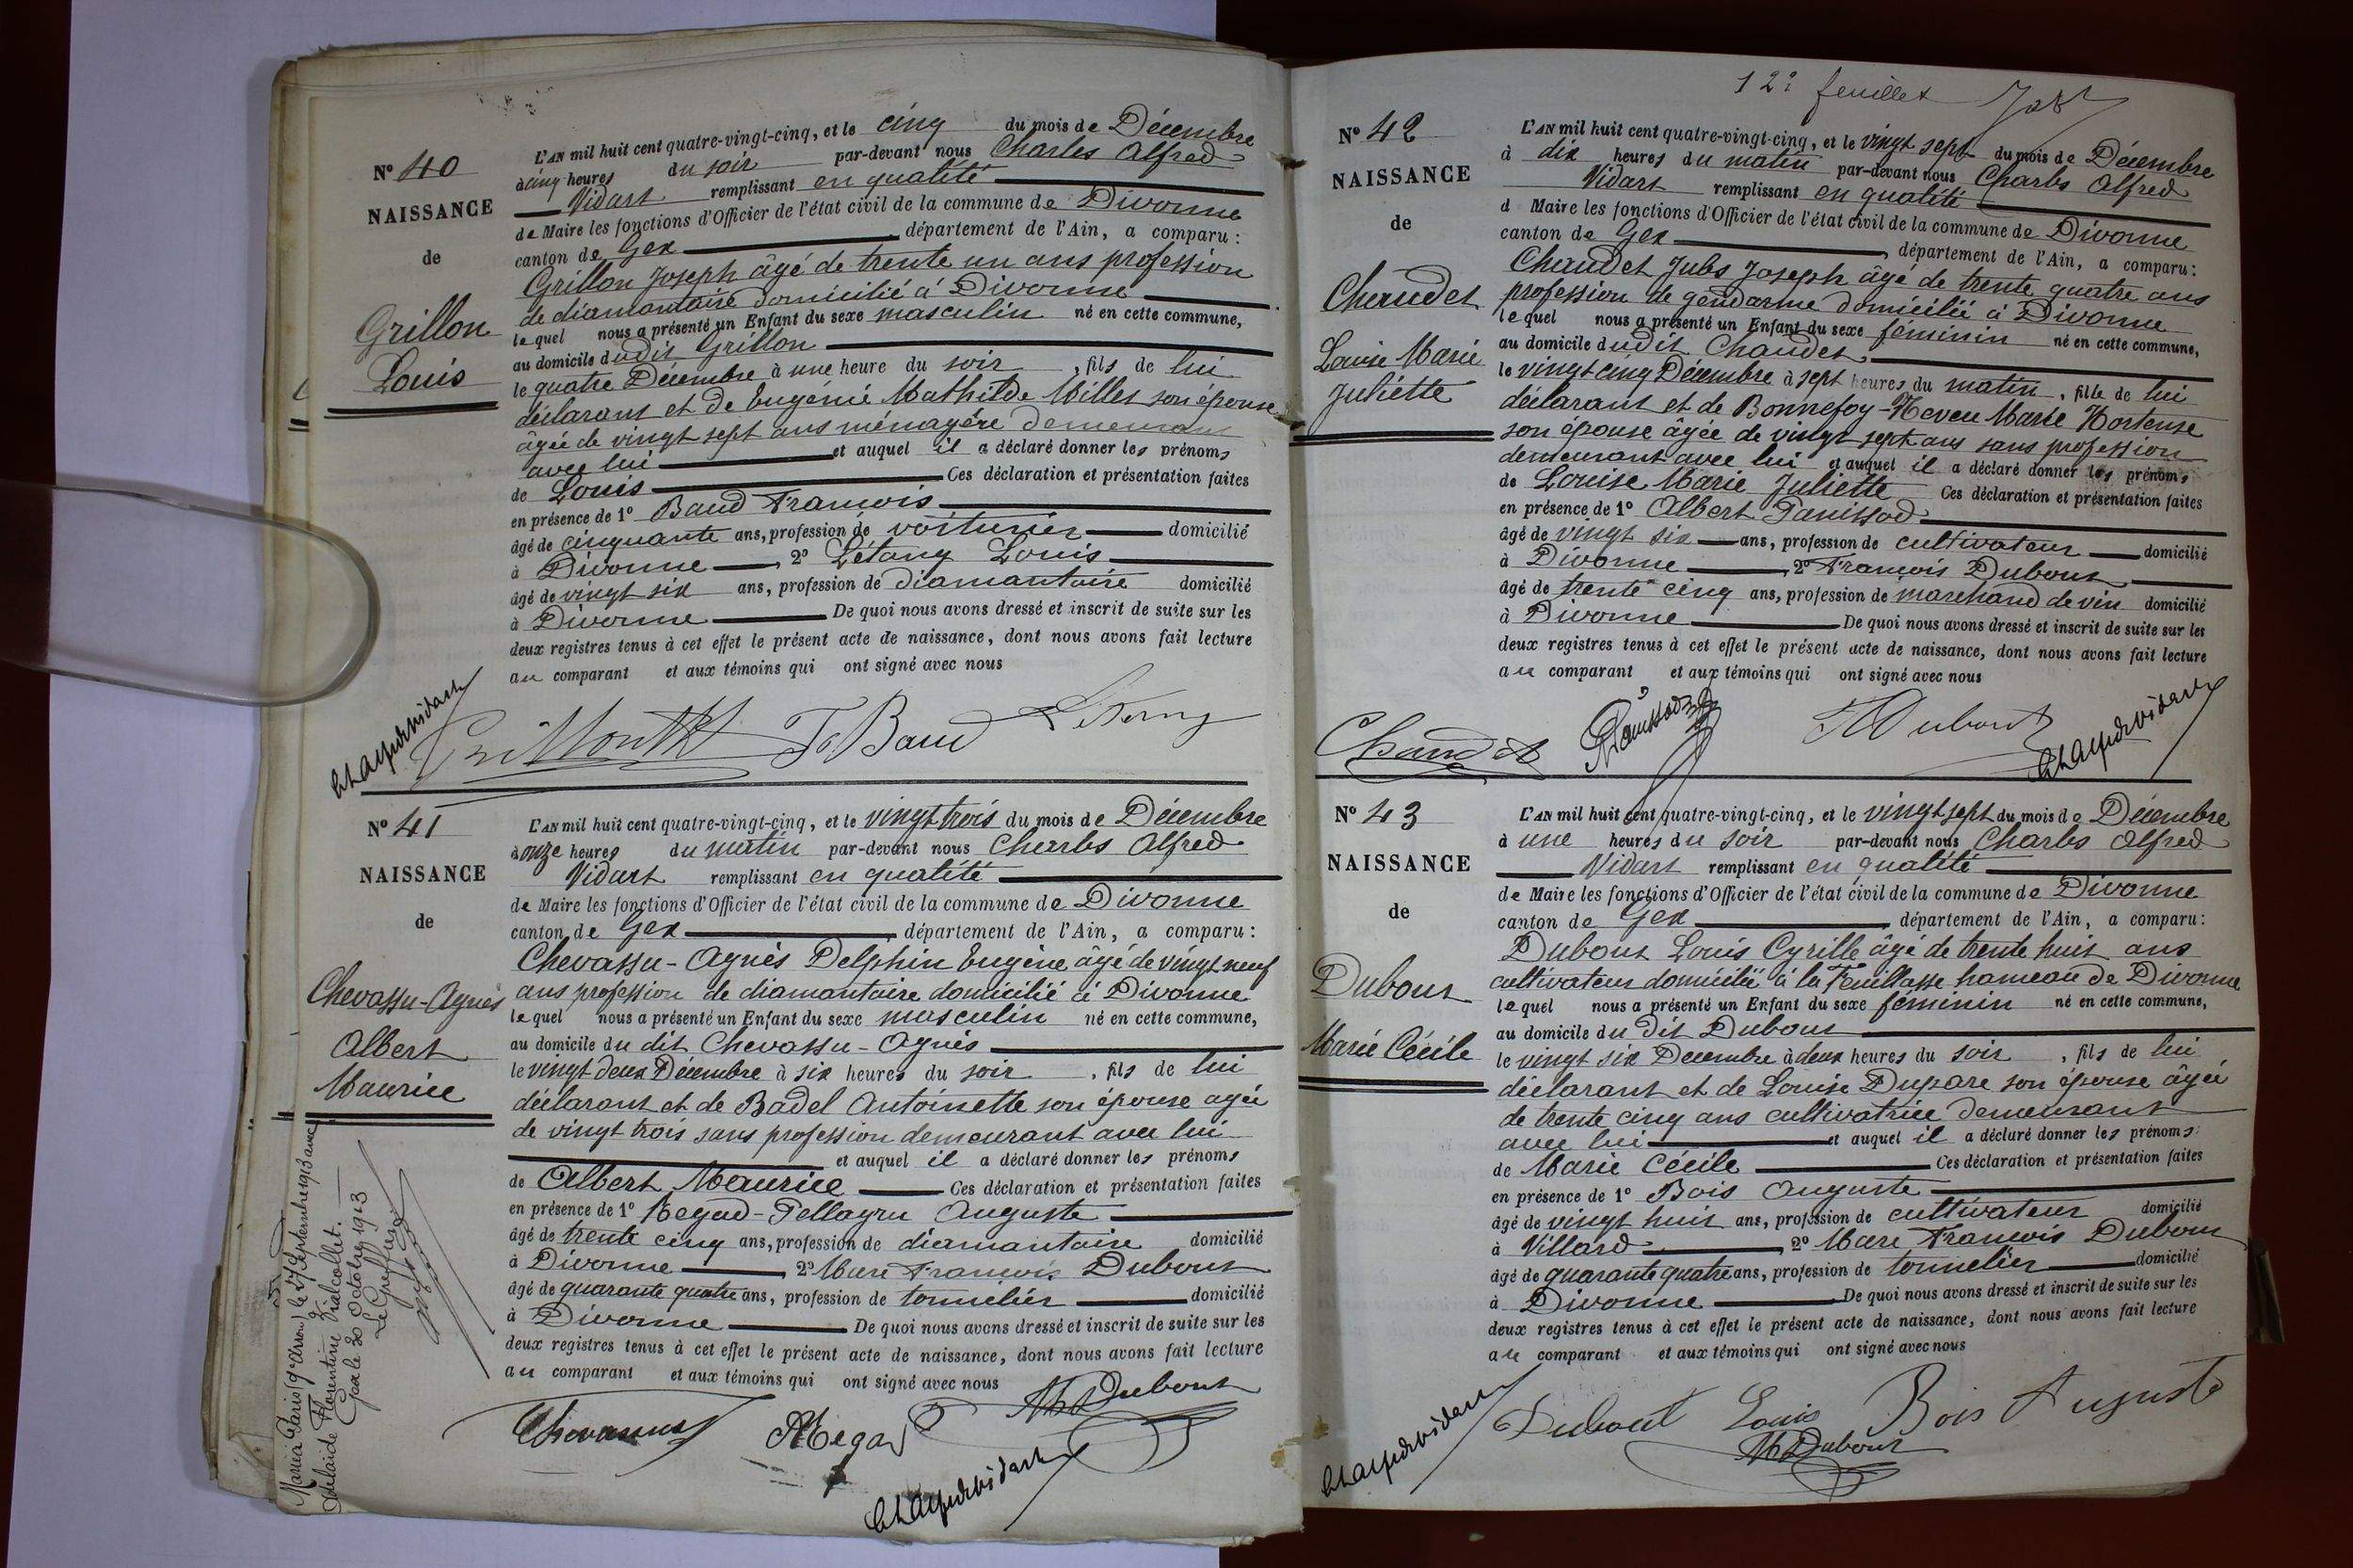 N° 40
NAISSANCE
de
Grillon
Louis
L'AN mil huit cent quatre-vingt-cinq, et le cinq du mois de Décembre
à cinq heures du soir par-devant nous Charles Alfred
Vidart remplissant en qualité
de Maire les fonctions d'Officier de l'état civil de la commune de Divonne
canton de Gex département de l'Ain, a comparu :
Grillon Joseph âgé de trente un ans profession
de diamantaire domicilié à Divonne
lequel nous a présenté un Enfant du sexe masculin né en cette commune,
au domicile dudit Grillon
le quatre Décembre à une heure du soir, fils de lui
déclarant et de Eugénie Mathilde Millet son épouse
âgée de vingt sept ans ménagère demeurant
avec lui et auquel il a déclaré donner les prénoms
de Louis Ces déclaration et présentation faites
en présence de 1° Baud François
âgé de cinquante ans, profession de voiturier domicilié
à Divonne, 2° Létang Louis
âgé de vingt six ans, profession de diamantaire domicilié
à Divonne De quoi nous avons dressé et inscrit de suite sur les
deux registres tenus à cet effet le présent acte de naissance, dont nous avons fait lecture
au comparant et aux témoins qui ont signé avec nous
Ch Alfred Vidart Grillon Fs Baud Létang
N° 41
NAISSANCE
de
Chevassu-Agnès
Albert
Maurice
L'AN mil huit cent quatre-vingt-cinq, et le vingt trois du mois de Décembre
à onze heures du matin par-devant nous Charles Alfred
Vidart remplissant en qualité
de Maire les fonctions d'Officier de l'état civil de la commune de Divonne
canton de Gex, département de l'Ain, a comparu :
Chevassu-Agnès Delphin Eugène âgé de vingt neuf
ans profession de diamantaire domicilié à Divonne
lequel nous a présenté un Enfant du sexe masculin né en cette commune,
au domicile du dit Chevassu-Agnès
le vingt deux Décembre à six heures du soir, fils de lui
déclarant et de Badel Antoinette son épouse agée
de vingt trois sans profession demeurant avec lui
et auquel il a déclaré donner les prénoms
de Albert Maurice Ces déclaration et présentation faites
en présence de 1° Regad-Pellagru Auguste
âgé de trente cinq ans, profession de diamantaire domicilié
à Divonne, 2° Marc François Dubout
âgé de quarante quatre ans, profession de tonnelier domicilié
à Divonne De quoi nous avons dressé et inscrit de suite sur les
deux registres tenus à cet effet le présent acte de naissance, dont nous avons fait lecture
au comparant et aux témoins qui ont signé avec nous
Chevassus A Regad Mc Dubout
Ch Alfred Vidart
Marié à Paris (9e Arron) le 27 Septembre 1913 avec
Adélaïde Florentine Vialcollet.
Gex le 30 Octobre 1913
Le Greffier
12e feuillet
N° 42
NAISSANCE
de
Chaudet
Louise Marie
Juliette
L'AN mil huit cent quatre-vingt-cinq, et le vingt sept du mois de Décembre
à dix heures du matin par-devant nous Charles Alfred
Vidart remplissant en qualité
d Maire les fonctions d'Officier de l'état civil de la commune de Divonne
canton de Gex, département de l'Ain, a comparu :
Chaudet Jules Joseph âgé de trente quatre ans
profession de gendarme domicilié à Divonne
lequel nous a présenté un Enfant du sexe féminin né en cette commune,
au domicile dudit Chaudet
le vingt cinq Décembre à sept heures du matin, fille de lui
déclarant et de Bonnefoy-Neveu Marie Hortense
son épouse âgée de vingt sept ans sans profession
demeurant avec lui et auquel il a déclaré donner les prénoms
de Louise Marie Juliette Ces déclaration et présentation faites
en présence de 1° Albert Panissod
âgé de vingt six ans, profession de cultivateur domicilié
à Divonne, 2° François Dubout
âgé de trente cinq ans, profession de marchand de vin domicilié
à Divonne De quoi nous avons dressé et inscrit de suite sur les
deux registres tenus à cet effet le présent acte de naissance, dont nous avons fait lecture
au comparant et aux témoins qui ont signé avec nous
Chaudet Panissod F Dubout Ch Alfred Vidart
N° 43
NAISSANCE
de
Dubout
Marie Cécile
L'AN mil huit cent quatre-vingt-cinq, et le vingt sept du mois de Décembre
à une heures du soir par-devant nous Charles Alfred
Vidart remplissant en qualité
de Maire les fonctions d'Officier de l'état civil de la commune de Divonne
canton de Gex, département de l'Ain, a comparu :
Dubout Louis Cyrille âgé de trente huit ans
cultivateur domicilié à la Feuillasse hameau de Divonne
lequel nous a présenté un Enfant du sexe féminin né en cette commune,
au domicile du dit Dubout
le vingt six Décembre à deux heures du soir, fils de lui
déclarant et de Louise Duparc son épouse âgée
de trente cinq ans cultivatrice demeurant
avec lui et auquel il a déclaré donner les prénoms
de Marie Cécile Ces déclaration et présentation faites
en présence de 1° Bois Auguste
âgé de vingt huit ans, profession de cultivateur domicilié
à Villard, 2° Marc François Dubout
âgé de quarante quatre ans, profession de tonnelier domicilié
à Divonne De quoi nous avons dressé et inscrit de suite sur les
deux registres tenus à cet effet le présent acte de naissance, dont nous avons fait lecture
au comparant et aux témoins qui ont signé avec nous
Ch Alfred Vidart Dubout Louis Bois Auguste
Mc Dubout